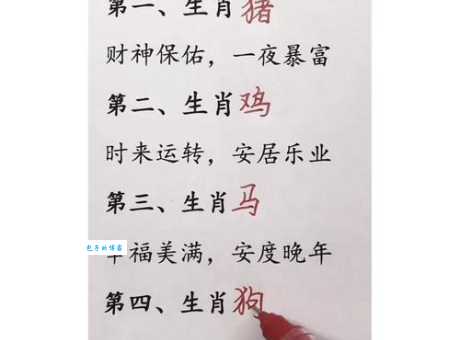 第一、生肖猪
财神保佑，一夜暴富
第二、生肖鸡
时来运转，安居乐业
第三、生肖马
福美满，安度晚年
第四、生肖狗